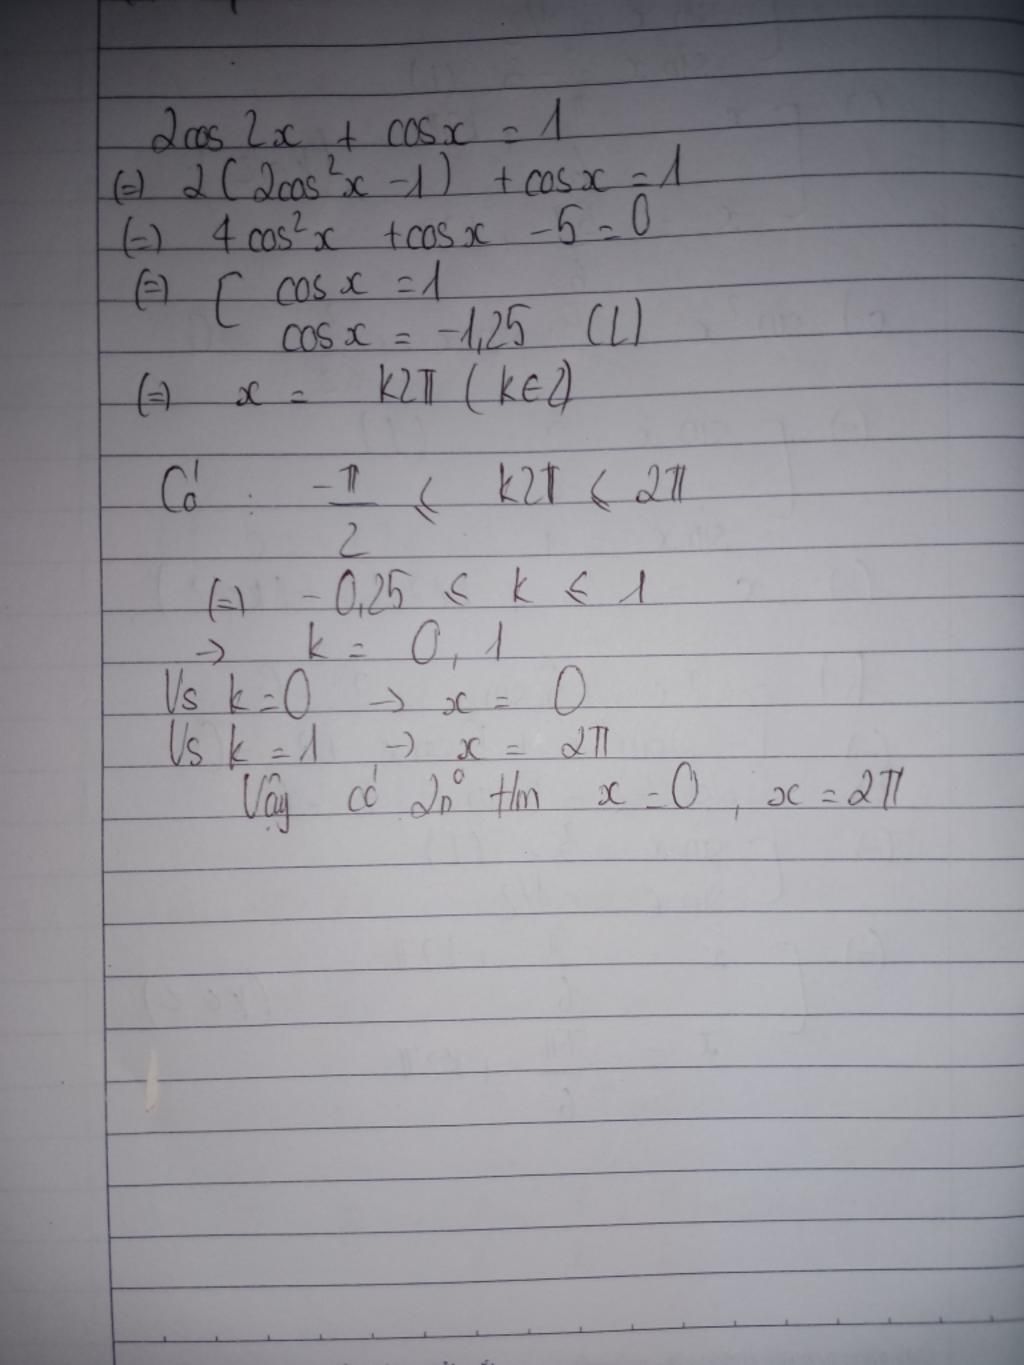 2cos2x + cosx = 1
(=) 2(2cos²x -1) + cosx = 1
(=) 4cos²x + cosx - 5 = 0
(=) [ cosx = 1
cosx = -1,25 (L)
(=) x = k2π (k∈Z)
Có : -π/2 ≤ k2π ≤ 2π
(=) -0,25 ≤ k ≤ 1
→ k = 0, 1
Vs k=0 → x = 0
Vs k=1 → x = 2π
Vậy có 2n⁰ t/m x=0, x=2π